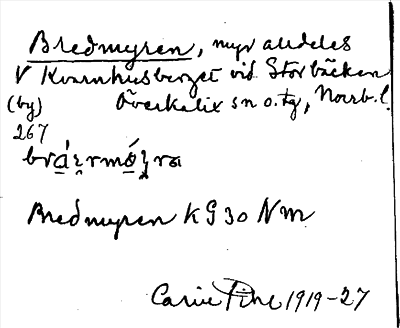 Bredmyren, myr alldeles
V Kvarnhusberget vid Storbäcken
(by) Överkalix sn o. tg, Norrb. l.
267
Bredmyren KG 30 Nm
Carin Pihl 1919-27